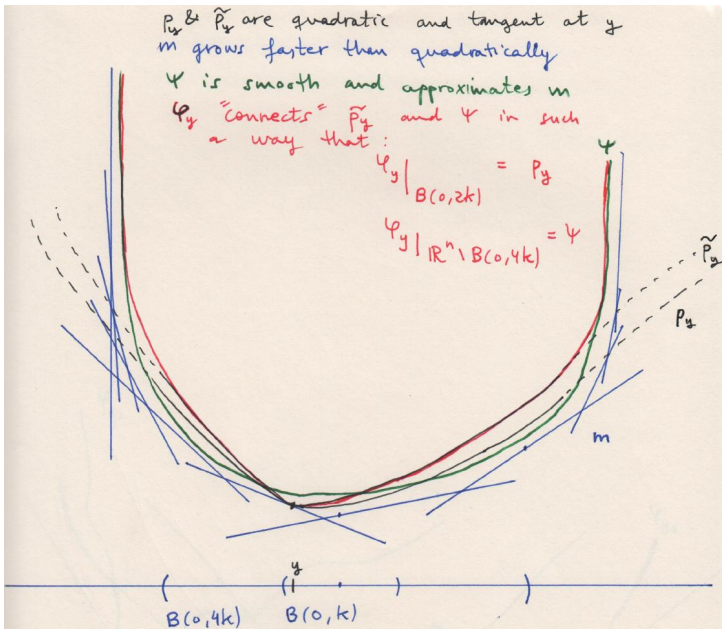 p_y & p̃_y are quadratic and tangent at y
m grows faster than quadratically
ψ is smooth and approximates m
φ_y "connects" p̃_y and ψ in such
a way that:
φ_y|_{B(0,2k)} = p_y
φ_y|_{ℝⁿ\B(0,4k)} = ψ
ψ
p̃_y
p_y
m
y
B(0,4k) B(0,k)